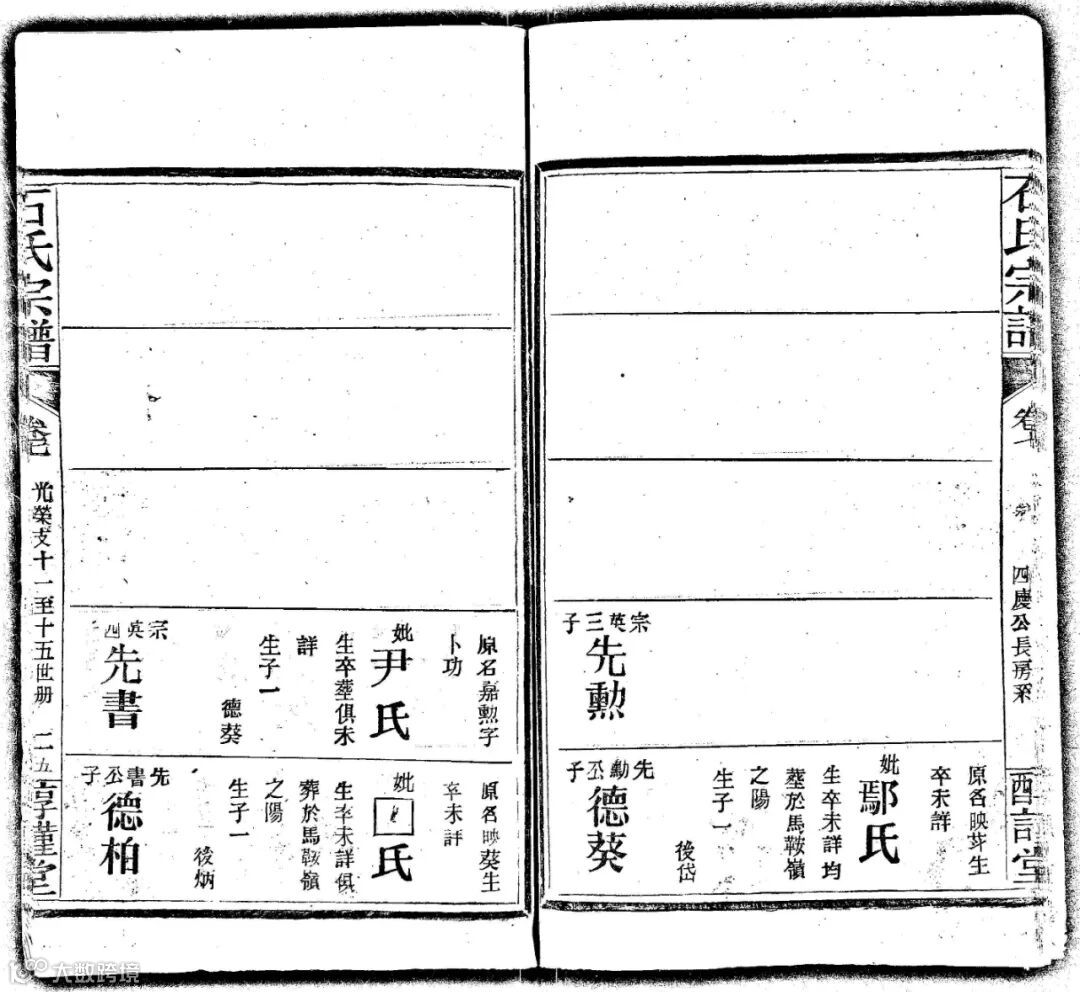 石氏宗
四慶公長房系
宗英三子
先勲
原名映芽生
卒未詳
妣
鄢氏
生卒未詳均
塟於馬鞍嶺
之陽
生子一
後岱
先勳公子
德葵
原名嘉勲字
卜功
妣
尹氏
生卒塟俱未
詳
生子一
德葵
宗英四子
先書
原名映葵生
卒未評
妣
氏
生卒未詳俱
葬於馬鞍嶺
之陽
生子一
後炳
先書公子
德柏
石氏宗譜
卷
光榮支十一至十五世册
二五
大数跨境